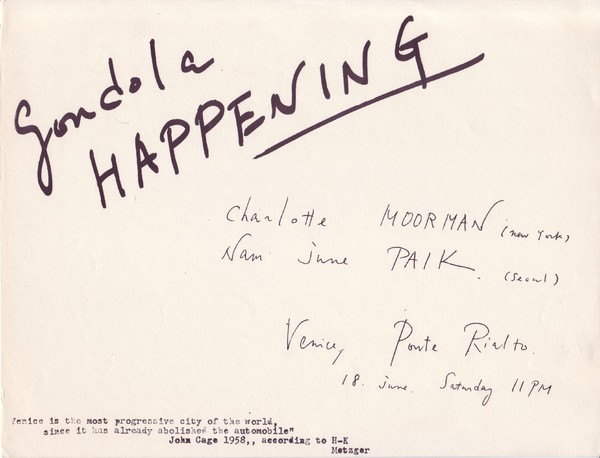 Gondola
HAPPENING
Charlotte MOORMAN (New York)
Nam June PAIK. (Seoul)
Venice, Ponte Rialto.
18. June. Saturday 11 PM
Venice is the most progressive city of the world,
since it has already abolished the automobile"
John Cage 1958,, according to H-K
Metzger